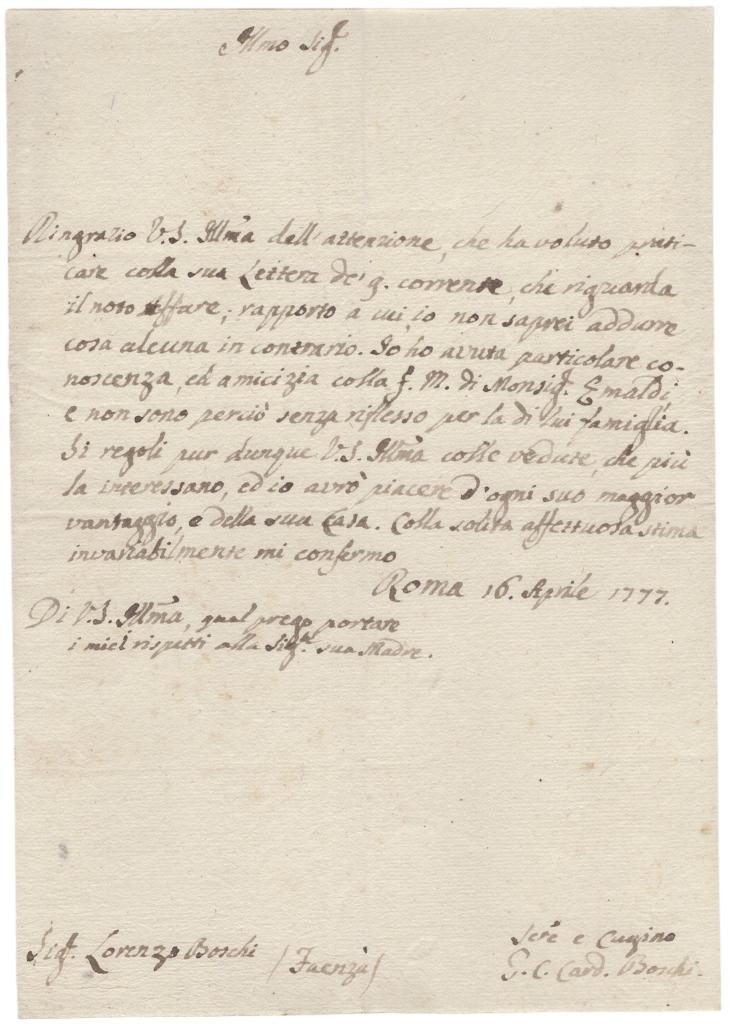 Illmo Sigr.
Ringrazio V. S. Illma dell'attenzione, che ha voluto prati-
care colla sua Lettera de' 9. corrente, che riguarda
il noto affare; rapporto a cui, io non saprei addurre
cosa alcuna in contrario. Io ho avuta particolare co-
noscenza, ed amicizia colla f. M. di Monsigr. Emaldi,
e non sono perciò senza riflesso per la di lui famiglia.
Si regoli pur dunque V. S. Illma colle vedute, che più
la interessano, ed io avrò piacere d'ogni suo maggior
vantaggio, e della sua Casa. Colla solita affettuosa stima
invariabilmente mi confermo
Roma 16. Aprile 1777.
Di V. S. Illma, qual prego portare
i miei rispetti alla Sigra. sua Madre.
Sigr. Lorenzo Boschi (Faenza)
Serre e Cugino
G. C. Card. Boschi.